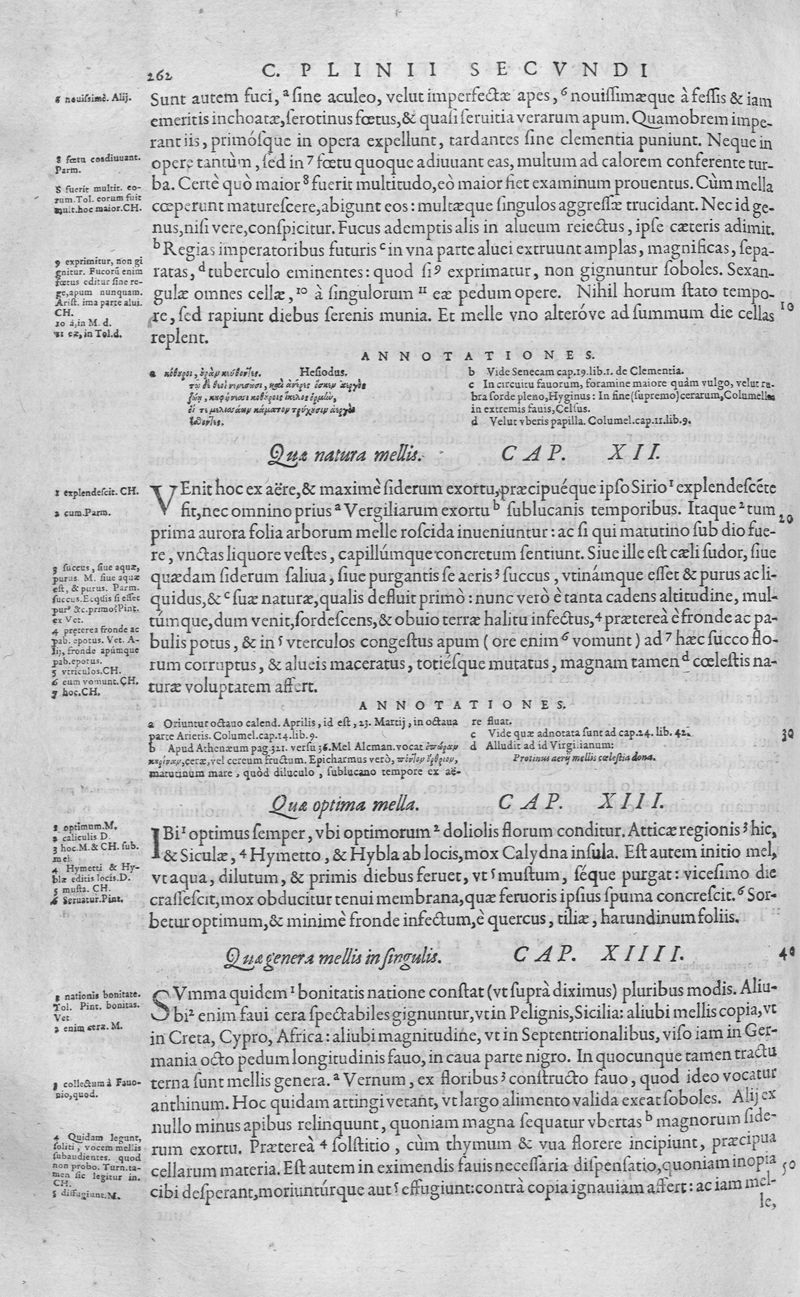 262
C. PLINII SECVNDI
6 nouissimè. Alij.
Sunt autem fuci, ª sine aculeo, velut imperfectæ apes, ⁶ nouissimæque à fessis & iam
emeritis inchoatæ, serotinus fœtus, & quasi seruitia verarum apum. Quamobrem impe-
rant iis, primósque in opera expellunt, tardantes sine clementia puniunt. Neque in
7 fœtu coadiuuant.
Parm.
opere tantùm, sed in ⁷ fœtu quoque adiuuant eas, multum ad calorem conferente tur-
8 fuerit multit. eo-
rum. Tol. eorum fuit
mult. hoc maior. CH.
ba. Certè quò maior ⁸ fuerit multitudo, eò maior fiet examinum prouentus. Cùm mella
cœperunt maturescere, abigunt eos: multæque singulos aggressæ trucidant. Nec id ge-
nus, nisi vere, conspicitur. Fucus ademptis alis in alueum reiectus, ipse cæteris adimit.
9 exprimitur, non gi
gnitur. Fucorũ enim
fœtus editur sine re-
ge, apum nunquam.
Arist. ima parte alui.
CH.
10 à, in M. d.
11 ex, in Tol. d.
ᵇ Regias imperatoribus futuris ᶜ in vna parte aluei extruunt amplas, magnificas, sepa-
ratas, ᵈ tuberculo eminentes: quod si ⁹ exprimatur, non gignuntur soboles. Sexan-
gulæ omnes cellæ, ¹⁰ à singulorum ¹¹ eæ pedum opere. Nihil horum stato tempo-
10
re, sed rapiunt diebus serenis munia. Et melle vno alteróve ad summum die cellas
replent.
ANNOTATIONES.
a Hesiodus.
b Vide Senecam cap. 19. lib. 1. de Clementia.
c In circuitu fauorum, foramine maiore quàm vulgo, velut ru-
bra sorde pleno, Hyginus: In fine (supremo) cerarum, Columella
in extremis fauis, Celsus.
d Velut vberis papilla. Columel. cap. 11. lib. 9.
Qua natura mellis. CAP. XII.
1 explendescit. CH.
VEnit hoc ex aëre, & maximè siderum exortu, præcipuéque ipso Sirio ¹ explendescẽte
2 cum. Parm.
fit, nec omnino prius ª Vergiliarum exortu ᵇ sublucanis temporibus. Itaque ² tum
20
prima aurora folia arborum melle roscida inueniuntur: ac si qui matutino sub dio fue-
re, vnctas liquore vestes, capillúmque concretum sentiunt. Siue ille est cæli sudor, siue
3 succus, siue aquæ,
purus. M. siue aquæ
est, & purus. Parm.
succus. Ecquis si esset
purº &c. primo: Pint.
ex Vet.
4 præterea fronde ac
pab. epotus. Vet. A-
lij, fronde apúmque
pab. epotus.
5 vtriculos. CH.
6 eum vomunt. CH.
7 hoc. CH.
quædam siderum saliua, siue purgantis se aeris ³ succus, vtinámque esset & purus ac li-
quidus, & ᶜ suæ naturæ, qualis defluit primò: nunc verò è tanta cadens altitudine, mul-
túmque, dum venit, sordescens, & obuio terræ halitu infectus, ⁴ præterea è fronde ac pa-
bulis potus, & in ⁵ vterculos congestus apum (ore enim ⁶ vomunt) ad ⁷ hæc succo flo-
rum corruptus, & alueis maceratus, totiésque mutatus, magnam tamen ᵈ cœlestis na-
turæ voluptatem affert.
ANNOTATIONES.
a Oriuntur octauo calend. Aprilis, id est, 23. Martij, in octaua
parte Arietis. Columel. cap. 14. lib. 9.
b Apud Athenæum pag. 321. versu 36. Mel Alcman. vocat
ceræ, vel cereum fructum. Epicharmus verò,
matutinum mare, quòd diluculo, sublucano tempore ex aë-
re fluat.
30
c Vide quæ adnotata sunt ad cap. 24. lib. 42.
d Alludit ad id Virgilianum:
Protinus aerij mellis cœlestia dona.
Qua optima mella. CAP. XIII.
1 optimum. M.
2 caliculis D.
3 hoc. M. & CH. sub.
mel.
4 Hymetti & Hy-
blæ editis locis. D.
5 musta. CH.
6 Seruatur. Pint.
IBi ¹ optimus semper, vbi optimorum ² doliolis florum conditur. Atticæ regionis ³ hic,
& Siculæ, ⁴ Hymetto, & Hybla ab locis, mox Calydna insula. Est autem initio mel,
vt aqua, dilutum, & primis diebus feruet, vt ⁵ mustum, séque purgat: vicesimo die
crassescit, mox obducitur tenui membrana, quæ feruoris ipsius spuma concrescit. ⁶ Sor-
betur optimum, & minimè fronde infectum, è quercus, tiliæ, harundinum foliis.
Qua genera mellis in singulis. CAP. XIIII.
40
1 nationis bonitate.
Tol. Pint. bonitas.
Vet
2 enim M.
SVmma quidem ¹ bonitatis natione constat (vt suprà diximus) pluribus modis. Aliu-
bi ² enim faui cera spectabiles gignuntur, vt in Pelignis, Sicilia: aliubi mellis copia, vt
in Creta, Cypro, Africa: aliubi magnitudine, vt in Septentrionalibus, viso iam in Ger-
mania octo pedum longitudinis fauo, in caua parte nigro. In quocunque tamen tractu
3 collectum à Fauo-
nio, quod.
terna sunt mellis genera. ª Vernum, ex floribus ³ constructo fauo, quod ideo vocatur
anthinum. Hoc quidam attingi vetant, vt largo alimento valida exeat soboles. Alij ex
nullo minus apibus relinquunt, quoniam magna sequatur vbertas ᵇ magnorum side-
4 Quidam legunt,
soliti, vocem mellis
subaudientes. quod
non probo. Turn. ta-
men sic legitur in.
CH.
5 diffugiunt. M.
rum exortu. Præterea ⁴ solstitio, cùm thymum & vua florere incipiunt, præcipua
cellarum materia. Est autem in eximendis fauis necessaria dispensatio, quoniam inopia
50
cibi desperant, moriuntúrque aut ⁵ effugiunt: contrà copia ignauiam affert: ac iam mel-
le,